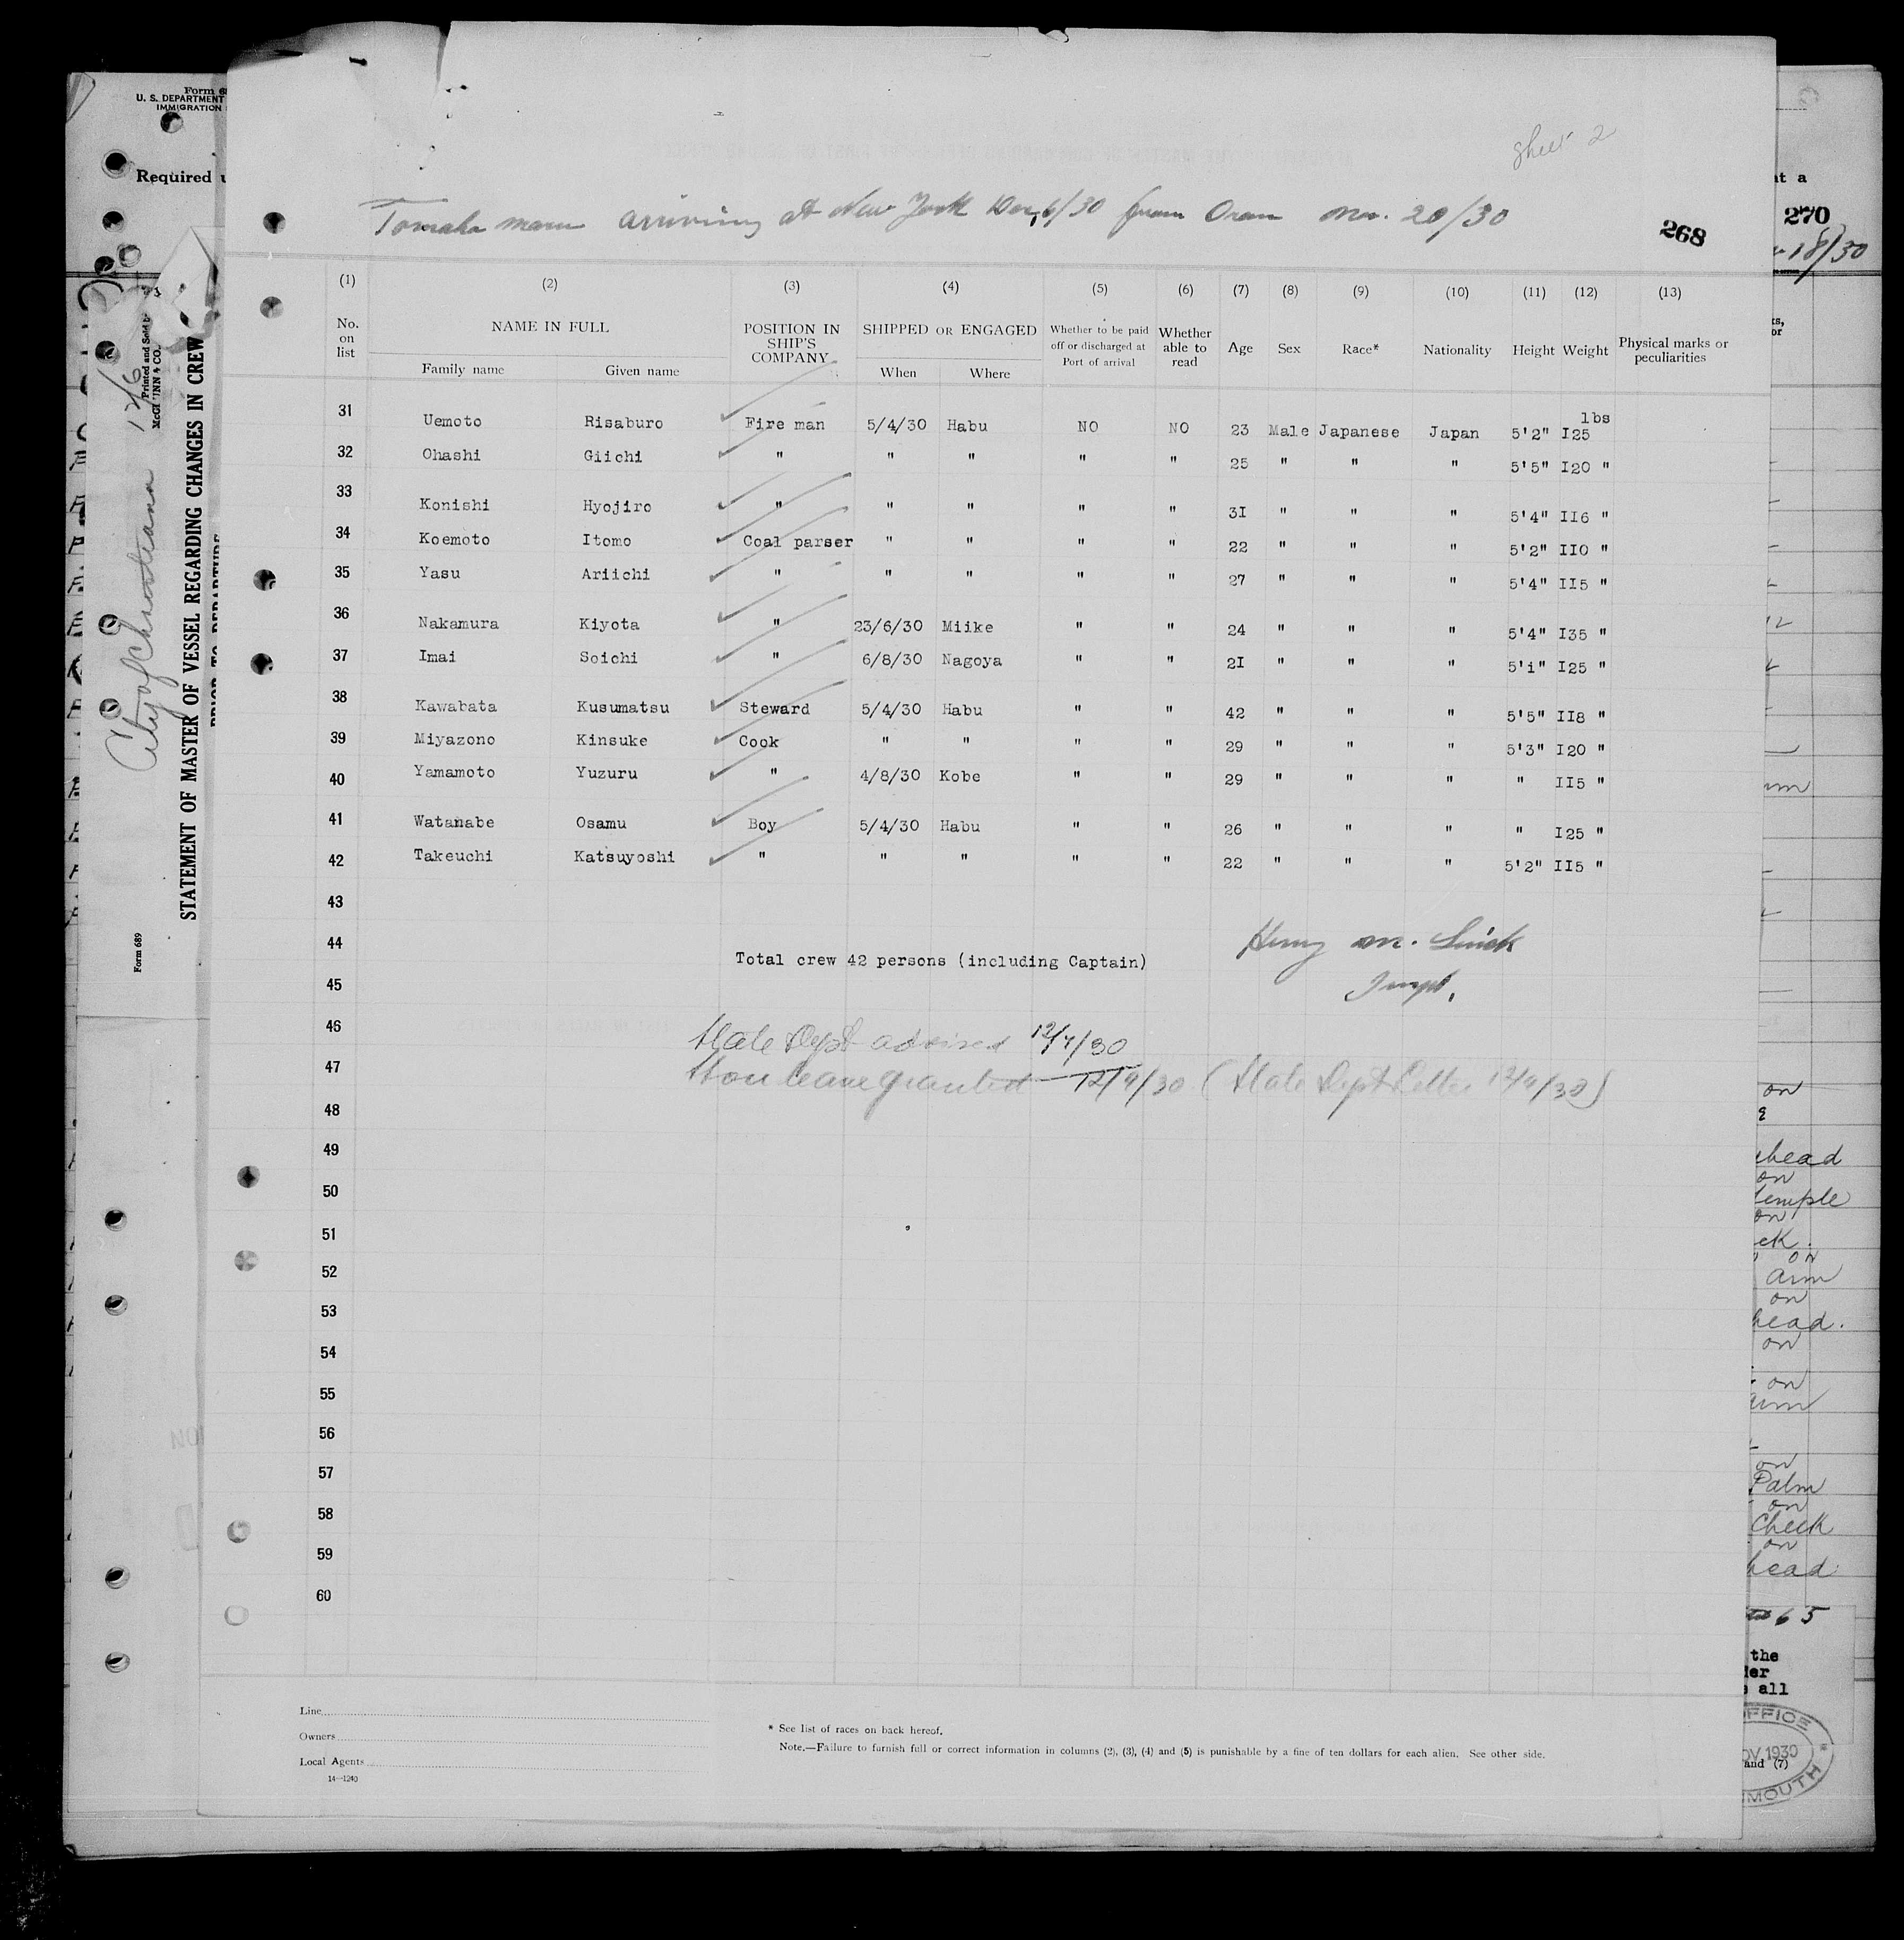 Form 68
U. S. DEPARTMENT
IMMIGRATION
Required u
sheet 2
Tomaha maru arriving at New York Dec, 6/30 from Oran Nov. 20/30
268
at a
270
18/30
(1) (2) (3) (4) (5) (6) (7) (8) (9) (10) (11) (12) (13)
No. on list NAME IN FULL POSITION IN SHIP'S COMPANY SHIPPED OR ENGAGED Whether to be paid off or discharged at Port of arrival Whether able to read Age Sex Race* Nationality Height Weight Physical marks or peculiarities
Family name Given name When Where
lbs
31 Uemoto Risaburo Fire man 5/4/30 Habu NO NO 23 Male Japanese Japan 5'2" I25
32 Ohashi Giichi " " " " " 25 " " " 5'5" I20 "
33 Konishi Hyojiro " " " " " 3I " " " 5'4" II6 "
34 Koemoto Itomo Coal parser " " " " 22 " " " 5'2" IIO "
35 Yasu Ariichi " " " " " 27 " " " 5'4" II5 "
36 Nakamura Kiyota " 23/6/30 Miike " " 24 " " " 5'4" I35 "
37 Imai Soichi " 6/8/30 Nagoya " " 2I " " " 5'i" I25 "
38 Kawabata Kusumatsu Steward 5/4/30 Habu " " 42 " " " 5'5" II8 "
39 Miyazono Kinsuke Cook " " " " 29 " " " 5'3" I20 "
40 Yamamoto Yuzuru " 4/8/30 Kobe " " 29 " " " " II5 "
41 Watanabe Osamu Boy 5/4/30 Habu " " 26 " " " " I25 "
42 Takeuchi Katsuyoshi " " " " " 22 " " " 5'2" II5 "
43
44
Total crew 42 persons (including Captain)
Henry M.
Inspt.
45
46
State Dept advised 12/7/30
47
Shore leave granted 12/9/30 (State Dept Letter 12/9/30)
48
49
50
51
52
53
54
55
56
57
58
59
60
Line
Owners
Local Agents
14—1240
* See list of races on back hereof.
Note.—Failure to furnish full or correct information in columns (2), (3), (4) and (5) is punishable by a fine of ten dollars for each alien. See other side.
STATEMENT OF MASTER OF VESSEL REGARDING CHANGES IN CREW
PRIOR TO DEPARTURE
Form 689
Printed and Sold b
City of
on
head
on
temple
on
on
arm
on
head.
on
on
arm
on
Palm
on
Cheek
on
head
65
the
all
OFFICE
1930
MOUTH
and (7)